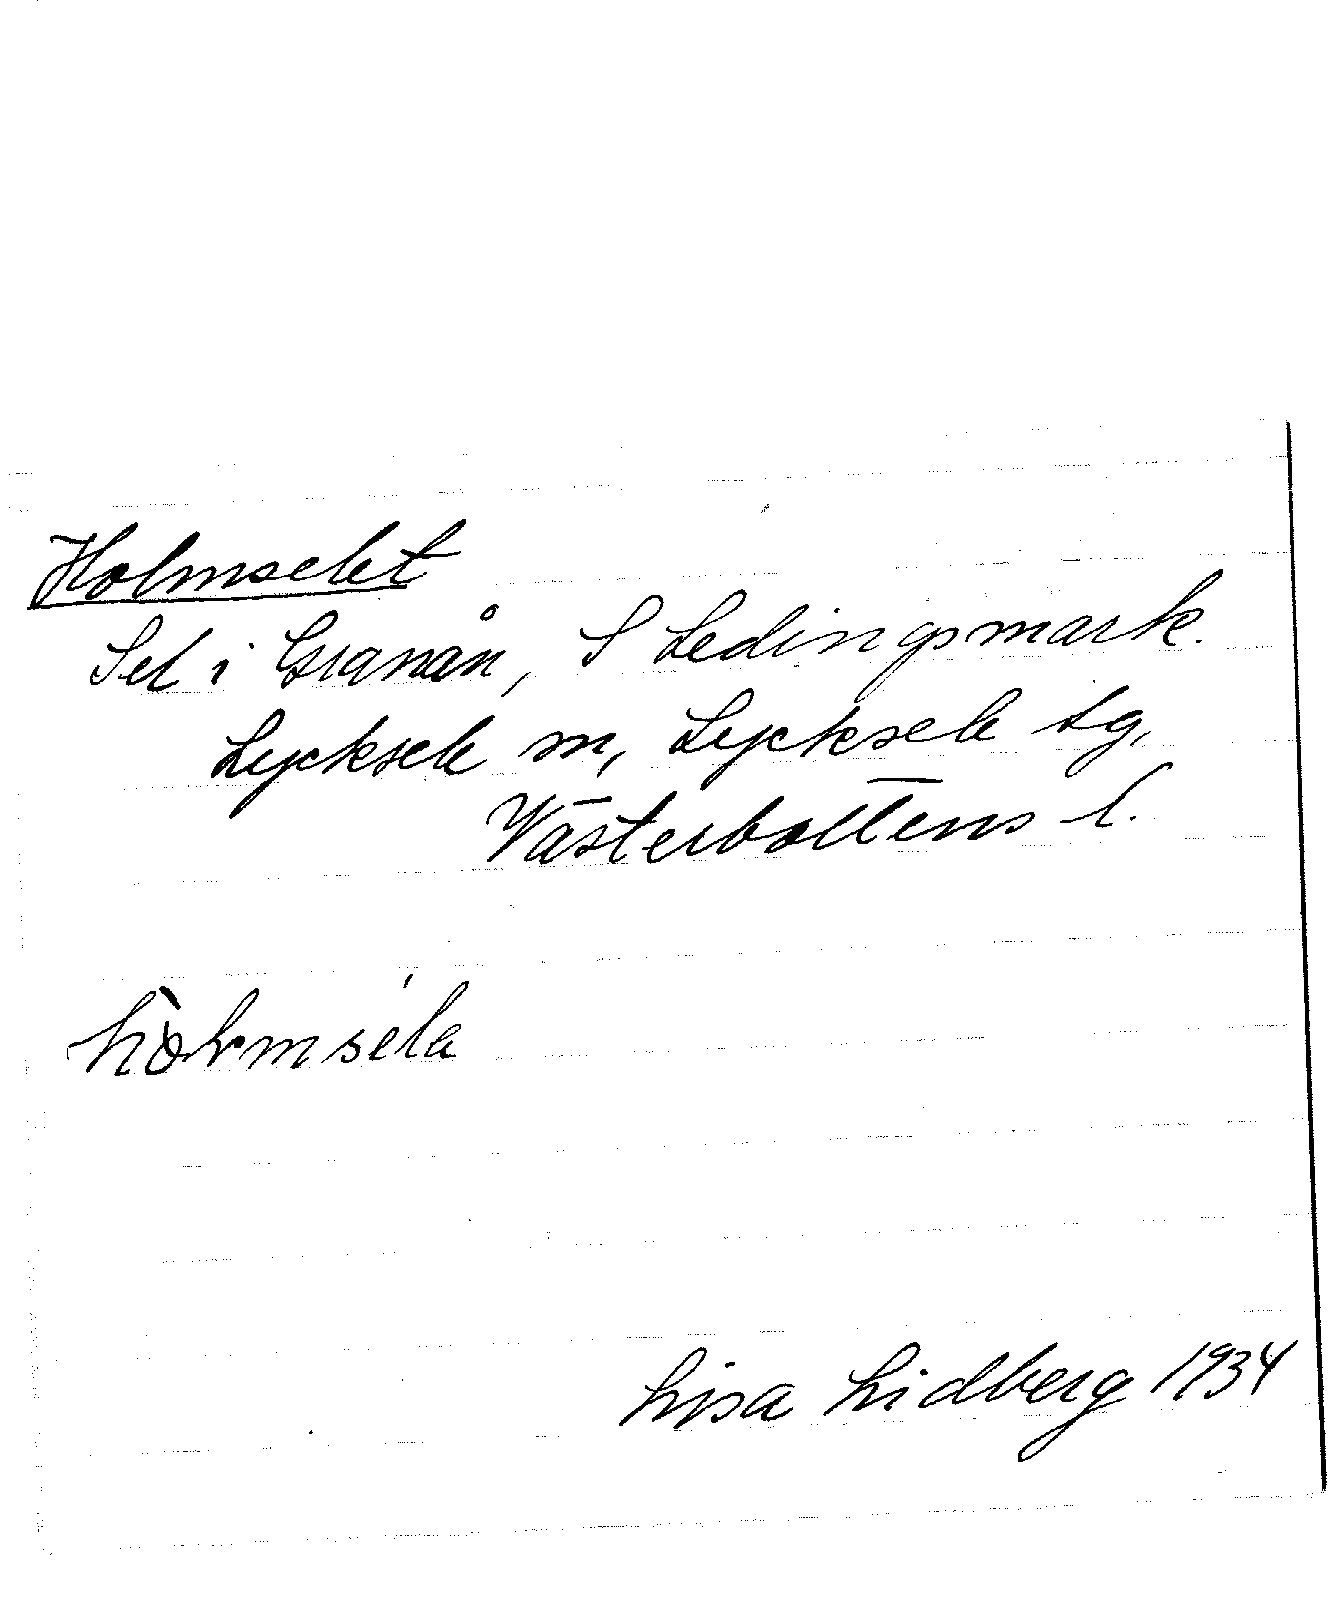 Holmselet
Sel i Granån, S Ledingsmark.
Lycksele sn, Lycksele tg,
Västerbottens l.
hòlmséla
Lisa Lidberg 1934